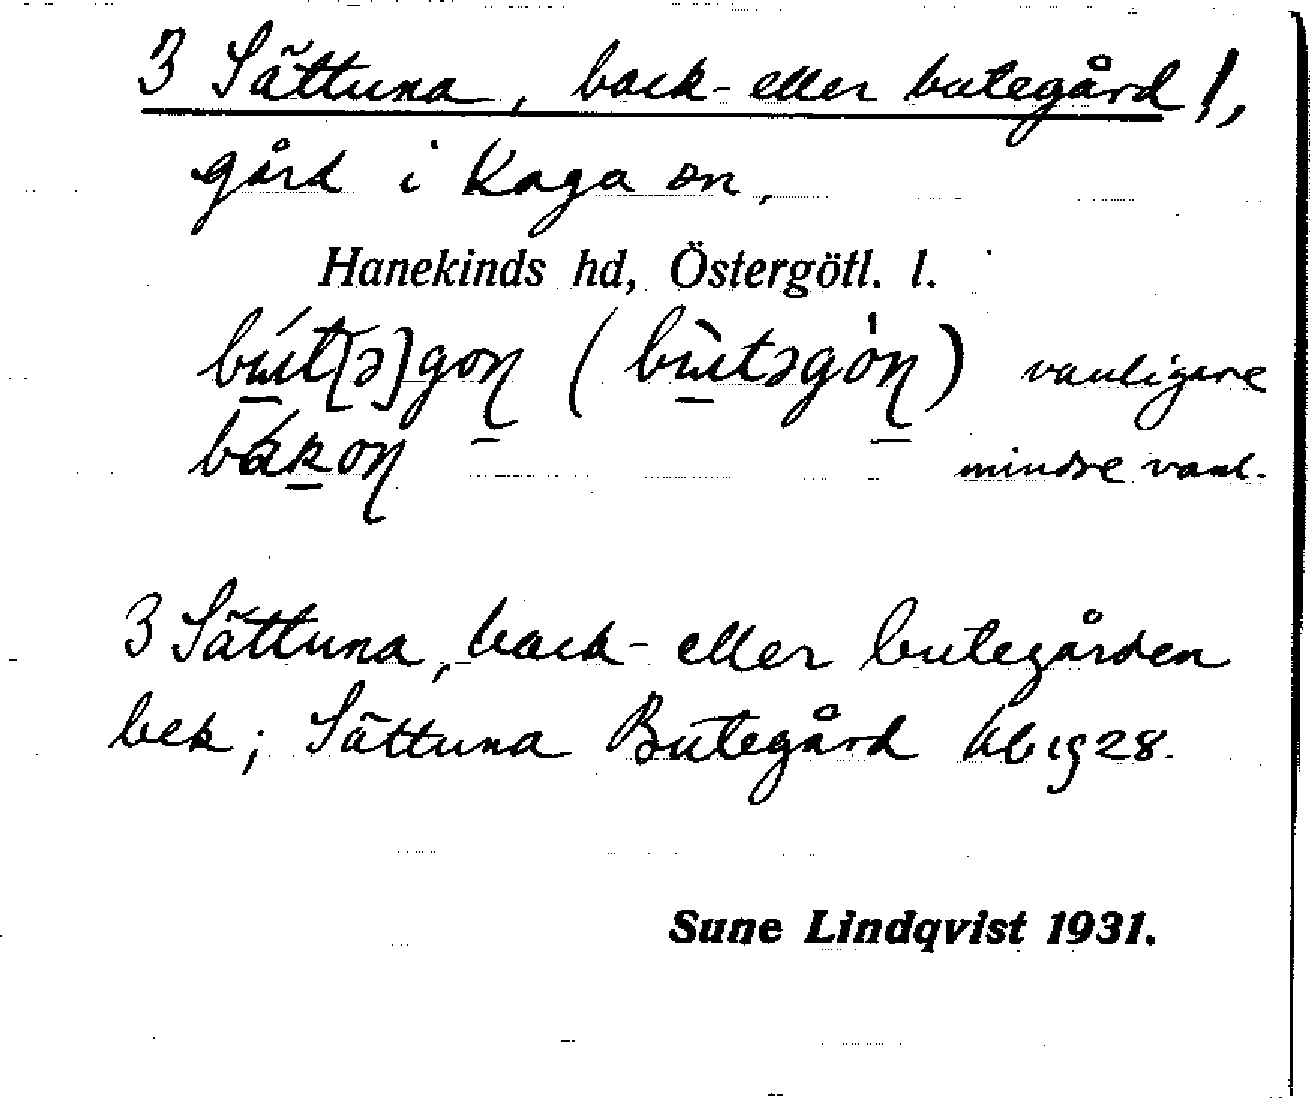 3 Sättuna, back- eller butegård !,
gård i Kaga sn,
Hanekinds hd, Östergötl. l.
bút[ə]goɳ (bùtəgòɳ) vanligare
bákoɳ mindre vanl.
3 Sättuna, back- eller butegården
bek; Sättuna Butegård kb 1928.
Sune Lindqvist 1931.